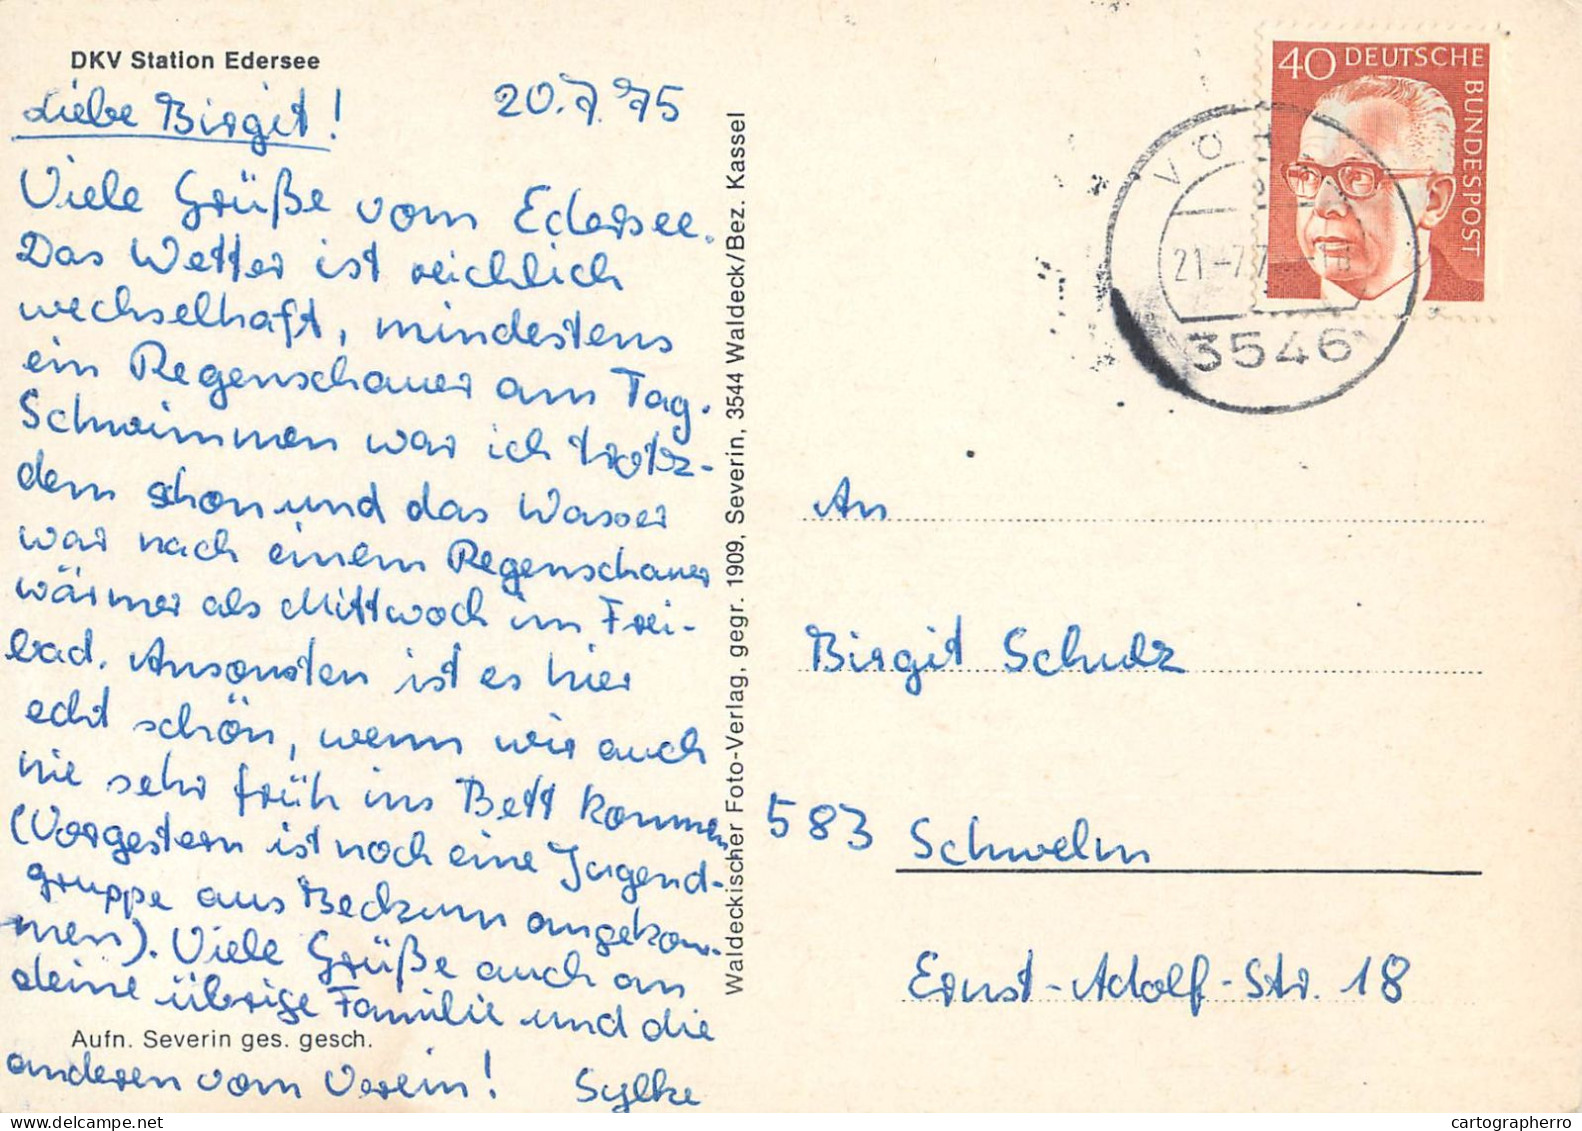 DKV Station Edersee
Liebe Birgit! 20.7.75
Viele Grüße vom Edersee.
Das Wetter ist reichlich
wechselhaft, mindestens
ein Regenschauer am Tag.
Schwimmen war ich trotz-
dem schon und das Wasser
war nach einem Regenschauer
wärmer als Mittwoch im Frei-
bad. Ansonsten ist es hier
echt schön, wenn wir auch
nie sehr früh ins Bett kommen
(Vorgestern ist noch eine Jugend-
gruppe aus Beckum angekom-
men). Viele Grüße auch an
deine übrige Familie und die
Aufn. Severin ges. gesch.
anderen vom Verein! Sylke
Waldeckischer Foto-Verlag, gegr. 1909, Severin, 3544 Waldeck/Bez. Kassel
40 DEUTSCHE
BUNDESPOST
21.-7.7
3546
An
Birgit Schulz
583 Schwelm
Ernst-Adolf-Str. 18
cartographerro